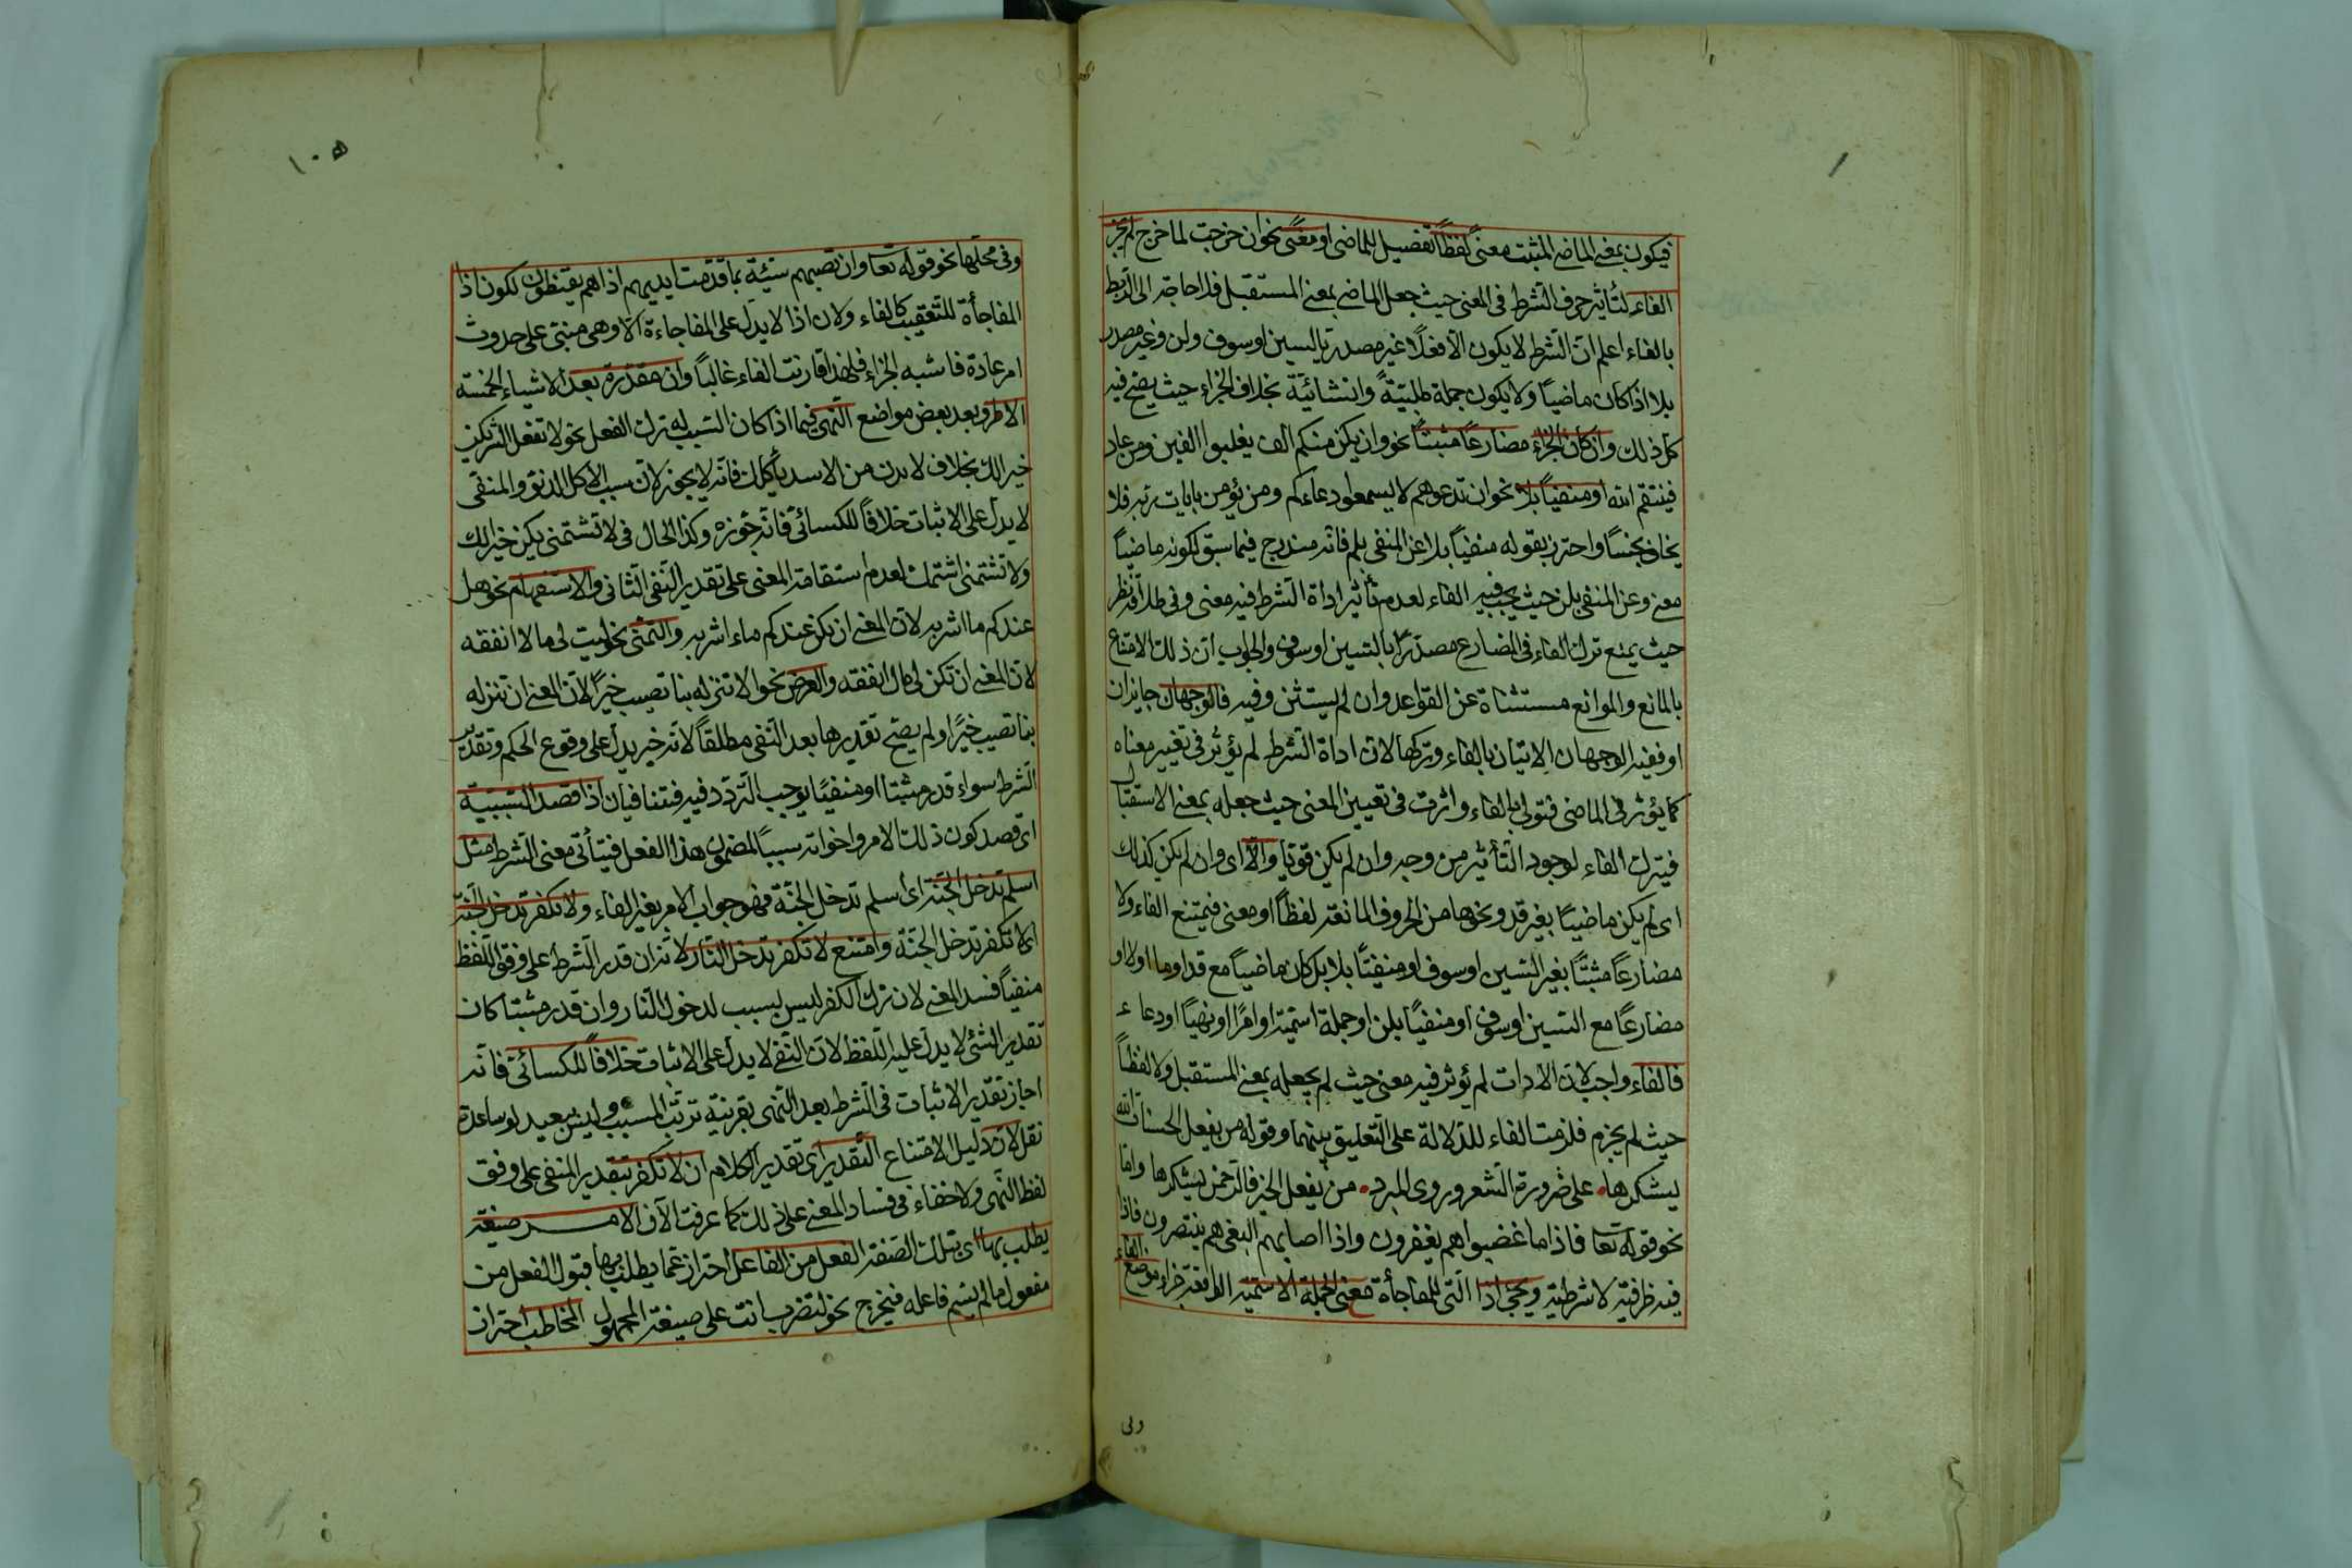 فيكون بمعنى الماضى المثبت معنىً لفظاً تفصيل للماضى او معنىً نحو ان خرجت لما خرج لم يجز
الفاء لتأثير حرف الشرط فى المعنى حيث جعل الماضى بمعنى المستقبل فلا حاجة الى الربط
بالفاء اعلم ان الشرط لا يكون الا فعلا غير مصدر بالسين او سوف ولن وغير مصدر
بلا اذا كان ماضياً ولا يكون جملة طلبيةً وانشائية بخلاف الجزاء حيث يصح فيه
كل ذلك وان كان الجزاء مضارعاً مثبتاً نحو وان يكن منكم الف يغلبوا الفين ومن عاد
فينتقم الله او منفياً بلا نحو ان تدعوهم لا يسمعوا دعاءكم ومن يؤمن بايات ربه فلا
يخاف بخساً واحترز بقوله منفياً بلا عن المنفى بلم فانه مندرج فيما سبق لكونه ماضياً
معنى وعن المنفى بلن حيث يجب فيه الفاء لعدم تأثير اداة الشرط فيه معنى وفى نظر
حيث يمنع ترك الفاء فى المضارع مصدرًا بالسين او سوف والجواب ان ذلك الامتناع
بالمانع والموانع مستثناة عن القواعد وان لم يستثن وفيه فالوجهان جايزان
او ففيه الوجهان الاتيان بالفاء وتركها لان اداة الشرط لم يؤثر فى تغيير معناه
كما يؤثر فى الماضى فتولى بالفاء واثرت فى تعيين المعنى حيث جعله بمعنى الاستقبال
فيترك الفاء لوجود التأثير من وجه وان لم يكن قويا والا اى وان لم يكن كذلك
اى لم يكن ماضياً بغير قد ونحوها من الحروف المانعة لفظاً او معنى فيمتنع الفاء ولا
مضارعاً مثبتاً بغير السين او سوف او منفيّاً بلا بل كان ماضياً مع قد او ما او لا او
مضارعاً مع السين او سوف او منفياً بلن او جملة اسمية او امرًا او نهياً او دعاء
فالفاء واجب لان الادات لم يؤثر فيه معنى حيث لم يجعله بمعنى المستقبل ولا لفظاً
حيث لم يجزم فلزمت الفاء للدلالة على التعليق بينهما وقوله من يفعل الحسنات الله
يشكرها على ضرورة الشعر وروى المبرد من يفعل الخير فالرحمن يشكرها واما
نحو قوله تعا فاذا ما غضبوا هم يغفرون واذا اصابهم البغى هم ينتصرون فاذا
فيه ظرفية لا شرطية ويجئ اذا التى للمفاجأة مع الجملة الاسمية الواقعة جزاء موضع الفاء
وفى
١٠٥
وفى محلها نحو قوله تعا وان تصبهم سيئة بما قدمت ايديهم اذا هم يقنطون لكون اذا
المفاجأة للتعقيب كالفاء ولان اذا لا يدل على المفاجاءة الا وهى مبنى على حدوث
امر عادة فاشبه الجزاء فلهذا قارنت الفاء غالباً وان مقدرة بعد الاشياء الخمسة
الامر وبعد بعض مواضع النهى فيما اذا كان السبب له ترك الفعل نحو لا تفعل الشر يكن
خيرا لك بخلاف لا تدن من الاسد يأكلك فانه لا يجوز لان سبب الاكل الدنو والمنفى
لا يدل على الاثبات خلافاً للكسائى فانه جوزه وكذا الحال فى لا تشتمنى يكن خيرا لك
ولا تشتمنى اشتمك لعدم استقامة المعنى على تقدير النفى الثانى والاستفهام نحو هل
عندكم ماء اشربه لان المعنى ان يكن عندكم ماء اشربه والتمنى نحو ليت لى مالا انفقه
لان المعنى ان تكن لى مال انفقه والعرض نحو الا تنزله بنا تصيب خيرًا لان المعنى ان تنزله
بنا تصيب خيرًا ولم يصح تقديرها بعد النفى مطلقاً لانه خبر يدل على وقوع الحكم وتقدير
الشرط سواء قدر مثبتا او منفيًا يوجب التردد فيه فتنافيان اذا قصد السببية
اى قصد كون ذلك الامر واخواته سببًا لمضمون هذا الفعل فيتأتى معنى الشرط مثل
اسلم تدخل الجنة اى اسلم تدخل الجنة فهو جواب الامر بغير الفاء ولا تكفر تدخل الجنة
اى لا تكفر تدخل الجنة وامتنع لا تكفر تدخل النار لانه ان قدر الشرط على وفق اللفظ
منفياً فسد المعنى لان ترك الكفر ليس بسبب لدخول النار وان قدر مثبتا كان
تقدير الشئ لا يدل عليه اللفظ لان النفى لا يدل على الاثبات خلافاً للكسائى فانه
اجاز تقدير الاثبات فى الشرط بعد النهى بقرينة ترتب المسبب وليس ببعيد لو ساعده
نقل لان دليل الامتناع التقدير اى تقدير الكلام ان لا تكفر بتقدير المنفى على وفق
لفظ النهى ولا خفاء فى فساد المعنى على ذلك كما عرفت الآن الامر صيغة
يطلب بها اى بتلك الصيغة الفعل من الفاعل احتراز عما يطلب بها قبول الفعل من
مفعول ما لم يسم فاعله فيخرج نحو لتضرب انت على صيغة المجهول المخاطب احتراز